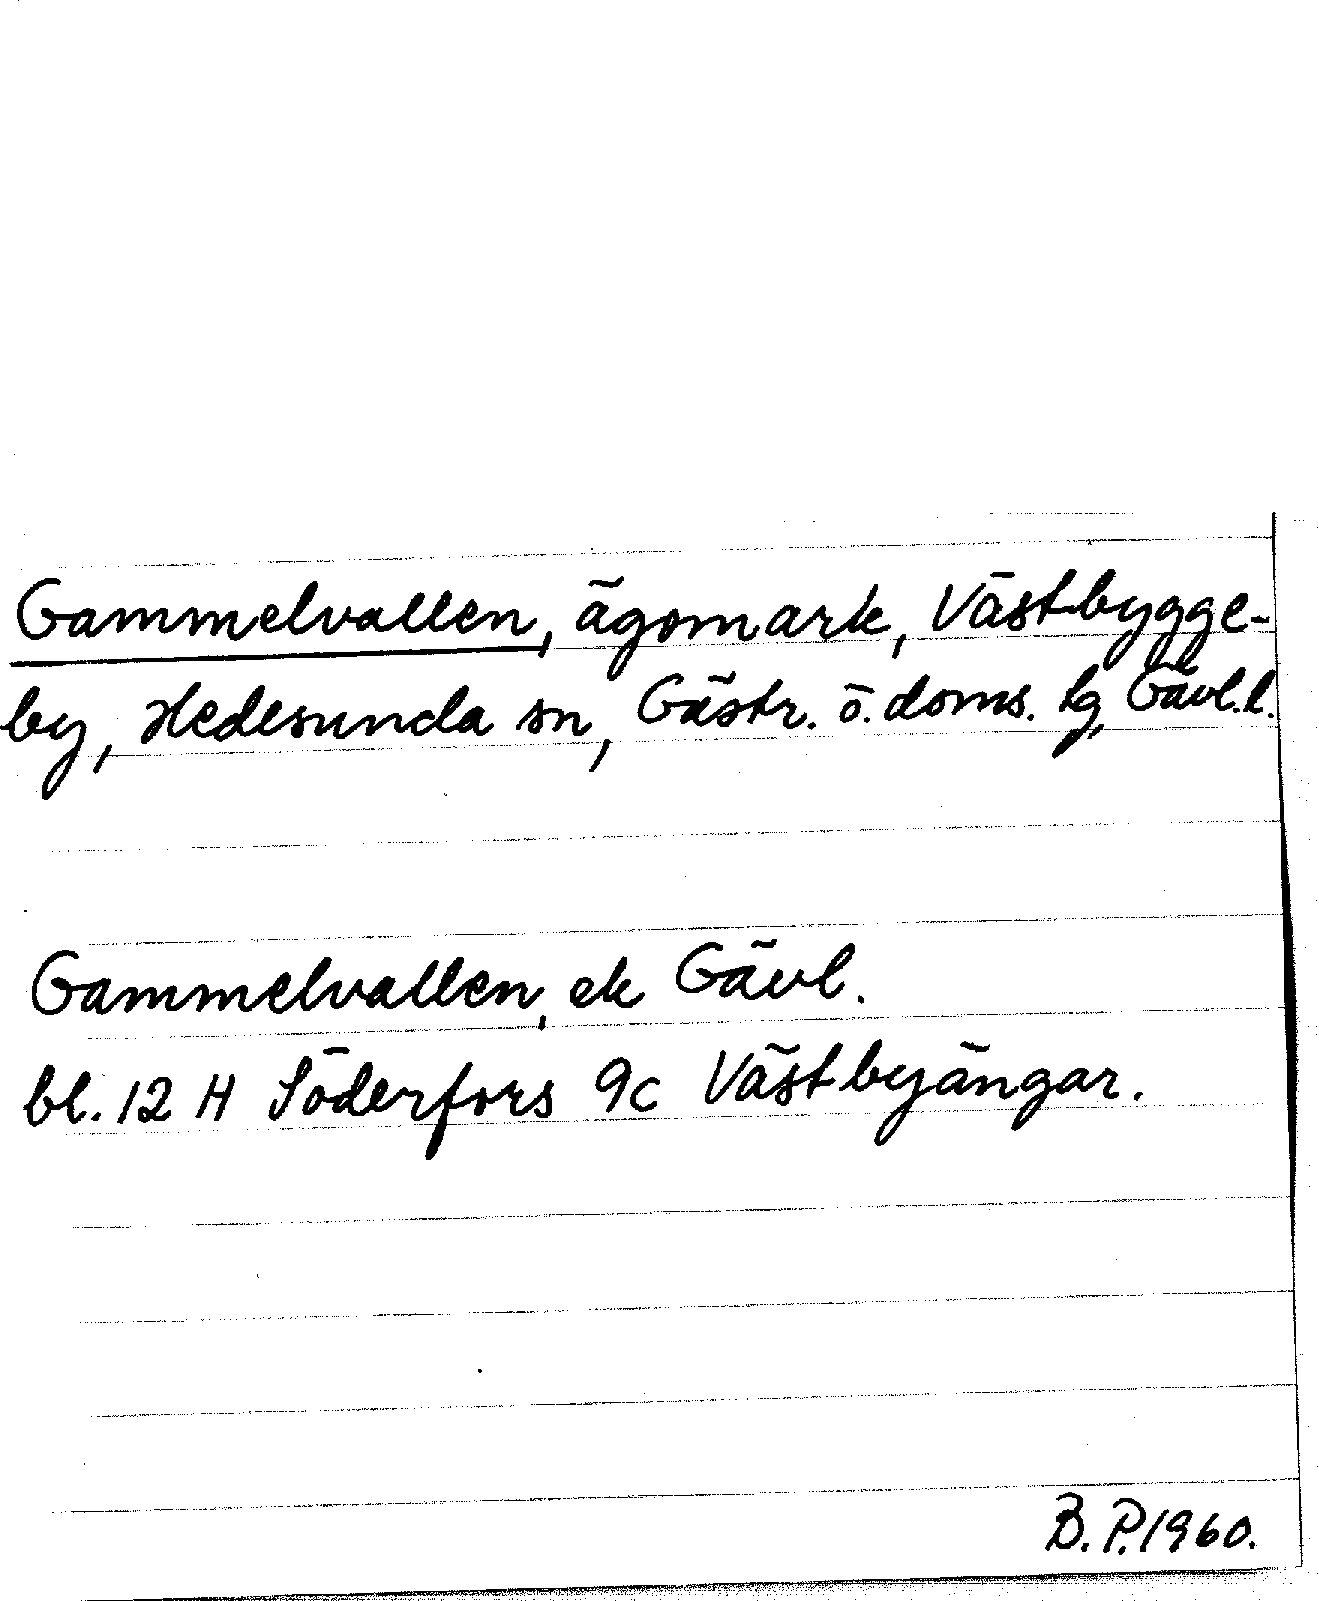 Gammelvallen, ägomark, Västbygge-
by, Hedesunda sn, Gästr. ö. doms. tg, Gävl.l.
Gammelvallen, ek Gävl.
bl. 12 H Söderfors 9c Västbyängar.
B.P.1960.